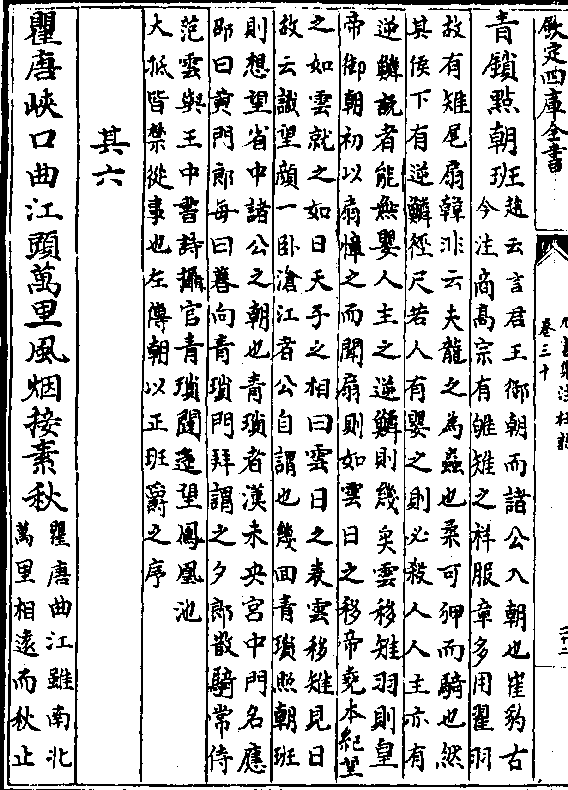 欽定四庫全書
九家集注杜詩
卷三十
青鎖點朝班
趙云言君王御朝而諸公入朝也崔豹古
今注商髙宗有雊雉之祥服章多用翟羽
故有雉尾扇韓非云夫龍之為蟲也柔可狎而騎也然
其喉下有逆鱗徑尺若人有嬰之則必殺人人主亦有
逆鱗説者能無嬰人主之逆鱗則幾矣雲移雉羽則皇
帝御朝初以扇幛之而開扇則如雲日之移帝堯本紀望
之如雲就之如日天子之相曰雲日之表雲移雉見日
故云識望顔一卧滄江者公自謂也幾回青瑣照朝班
則想望省中諸公之朝也青瑣者漢未央宫中門名應
邵曰黄門郎每日暮向青瑣門拜謂之夕郎散騎常侍
范雲與王中書詩攝官青瑣闥遥望鳳凰池
大抵皆禁從事也左傳朝以正班爵之序
其六
瞿唐峽口曲江頭萬里風烟接素秋
瞿唐曲江雖南北
萬里相逺而秋止